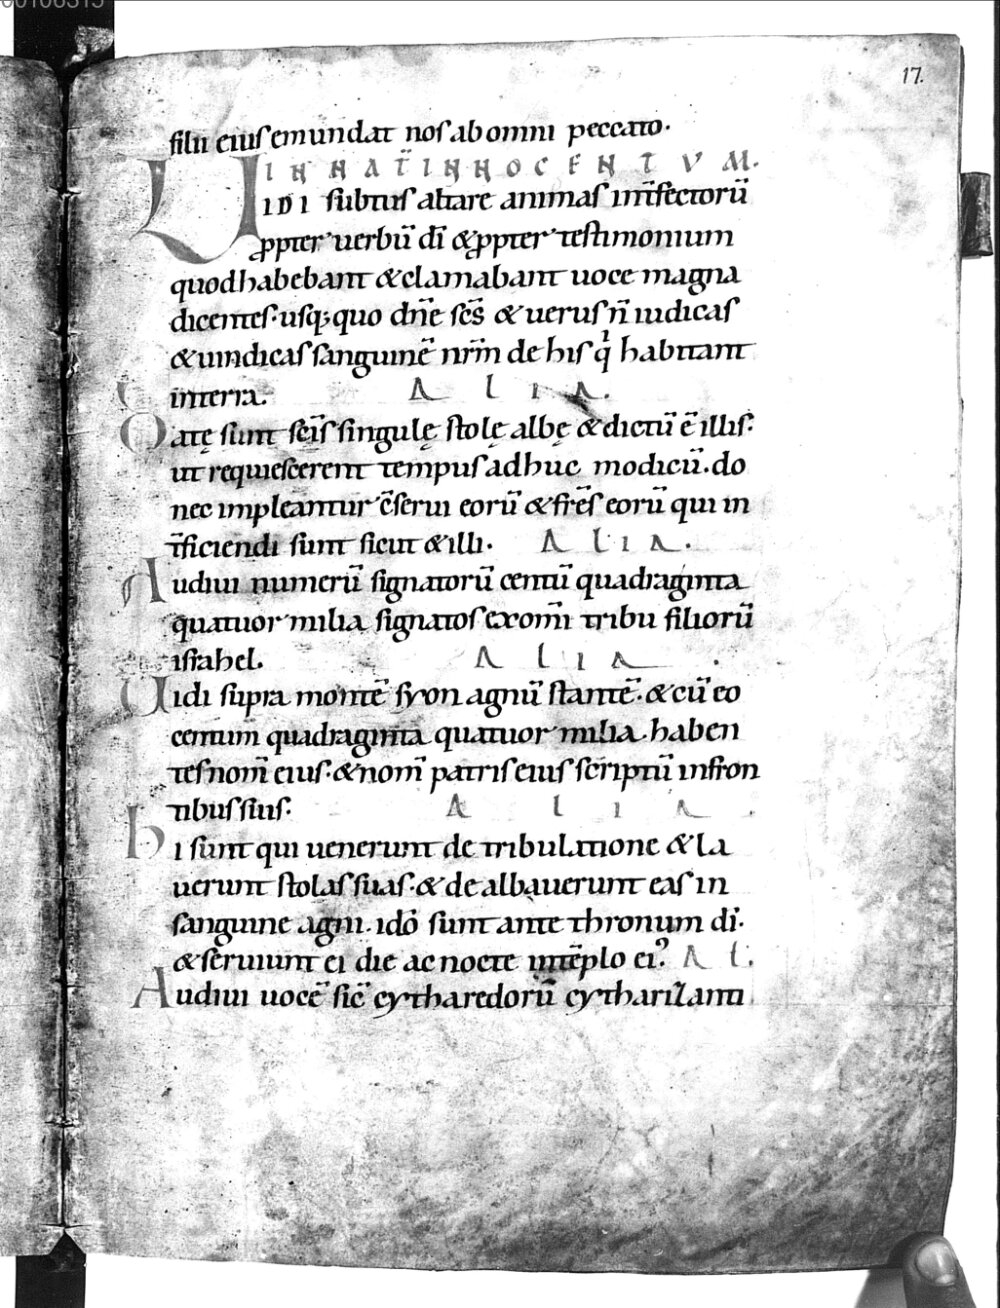 00106315
17.
filii eiuſ emundat noſ ab omni peccato.
IN NAT̄ INNOCENTVM.
UIDI ſubtuſ altare animaſ int̄fectorū
ꝓpter uerbū dī & ꝓpter teſtimonium
quod habebant & clamabant uoce magna
dicenteſ. uſq; quo dn̄e ſc̄s & ueruſ n̄ iudicaſ
& uindicaſ ſanguinē nr̄m de hiſ q̇ habitant
in terra. ALIA.
Datę ſunt ſeīſ ſingulę ſtolę albę & dictū ē illiſ:
ut requieſcerent tempuſ adhuc modicū. do
nec impleantur c̄ſerui eorū & fr̄eſ eorū qui in
t̄ficiendi ſunt ſicut & illi. ALIA.
Audiui numerū ſignatorū centū quadraginta
quatuor milia ſignatoſ ex om̄i tribu filiorū
iſrahel. ALIA.
Uidi ſupra montē ſyon agnū ſtantē. & cū eo
centum quadraginta quatuor milia haben
teſ nom̄ eiuſ. & nom̄ patriſ eiuſ ſcriptū in fron
tibuſ ſuiſ. ALIA.
hi ſunt qui uenerunt de tribulatione & la
uerunt ſtolaſ ſuaſ. & de albauerunt eaſ in
ſanguine agni. idō ſunt ante thronum dī.
& ſeruiunt ei die ac nocte in tēplo ei᾽. AL.
Audiui uocē ſic̄ cytharedorū cythariſanti